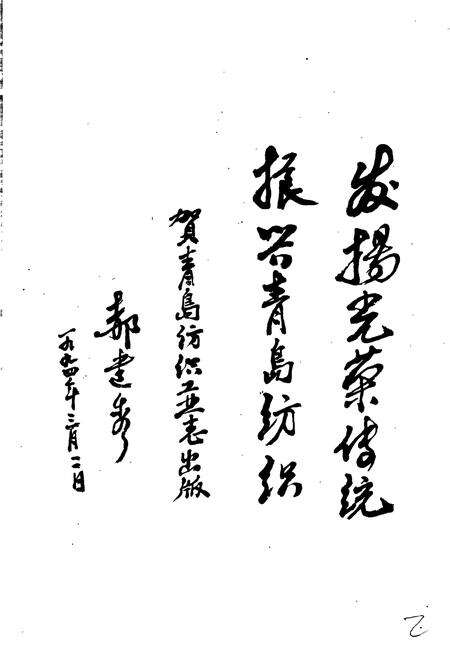 发揚光荣傳統
振兴青島纺织
賀青島纺织工业志出版
郝建秀
一九九四年三月二日